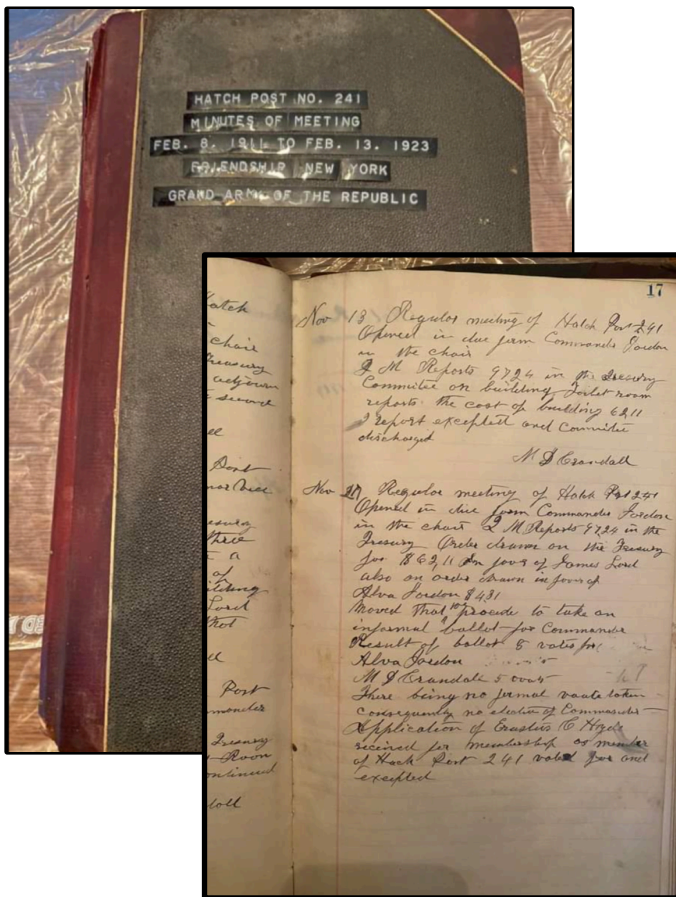 HATCH POST NO. 241
MINUTES OF MEETING
FEB. 8. 1911 TO FEB. 13. 1923
FRIENDSHIP NEW YORK
GRAND ARMY OF THE REPUBLIC
17
Hatch
chair
Treasury
adjourn
Post
a
of
Lord
that
Post
Commander
Treasury
Room
continued
Nov 13 Regular meeting of Hatch Post 241
Opened in due form Commander Jordon
in the chair
Q M Reports 9724 in the Treasury
Committee on building Toilet room
reports the cost of building 6211
report excepted and Committee
discharged
M D Crandall
Nov 27 Regular meeting of Hatch Post 241
Opened in due form Commander Jordon
in the chair Q M Reports 9724 in the
Treasury Order drawn on the Treasury
for $62,11 in favor of James Lord
also an order drawn in favor of
Alva Jordon $431
Moved that procede to take an
informal ballot for Commander
Result of ballot 8 votes for
Alva Jordon
M D Crandall 5
There being no formal vaute taken
consequently no election of Commander
Application of Erastus C
recieved for membership as member
of Hack Post 241 voted for and
excepted